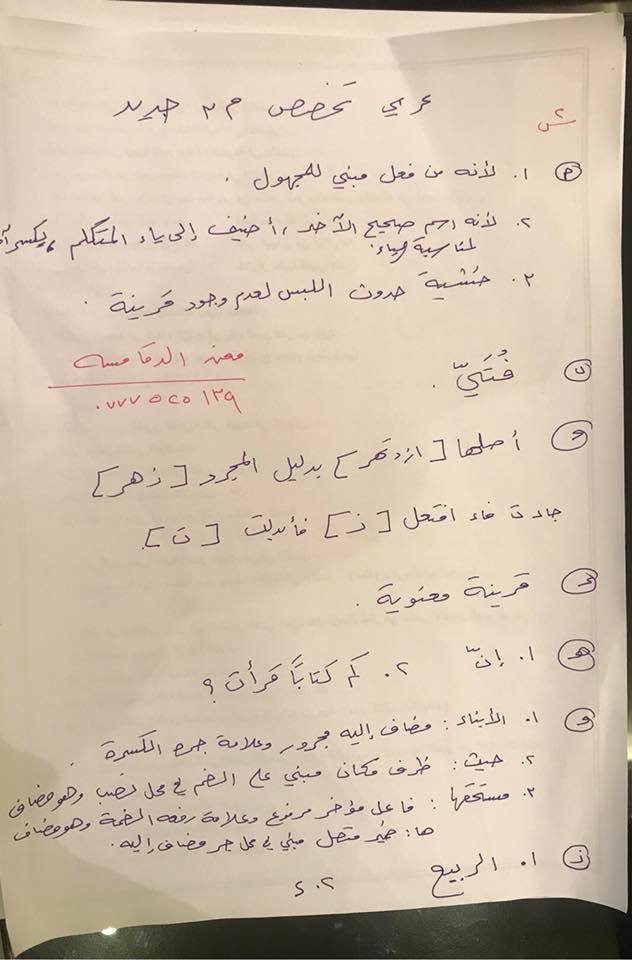 عربي تخصص م٣ جديد
س٢
أ ١. لأنه من فعل مبني للمجهول .
٢. لأنه اسم صحيح الآخر، أضيف إلى ياء المتكلم، يكسر
لمناسبة الياء.
٣. خشية حدوث اللبس لعدم وجود قرينة .
ب فُتَيّ .
معن الدقامسه
٠٧٧٧٥٢٥١٣٩
أصلها [ازتهر] بدليل المجرد [زهر]
جاءت فاء افتعل [ز] فأبدلت [ت].
د قرينة معنوية .
هـ ١. إنّ ٢. كم كتابًا قرأت ؟
و ١. الأبناء : مضاف إليه مجرور وعلامة جره الكسرة .
٢. حيث : ظرف مكان مبني على الضم في محل نصب وهو مضاف
٣. مستحقها : فاعل مؤخر مرفوع وعلامة رفعه الضمة وهو مضاف
ها : ضمير متصل مبني في محل جر مضاف إليه.
ز ١. الربيع ٢. ٤